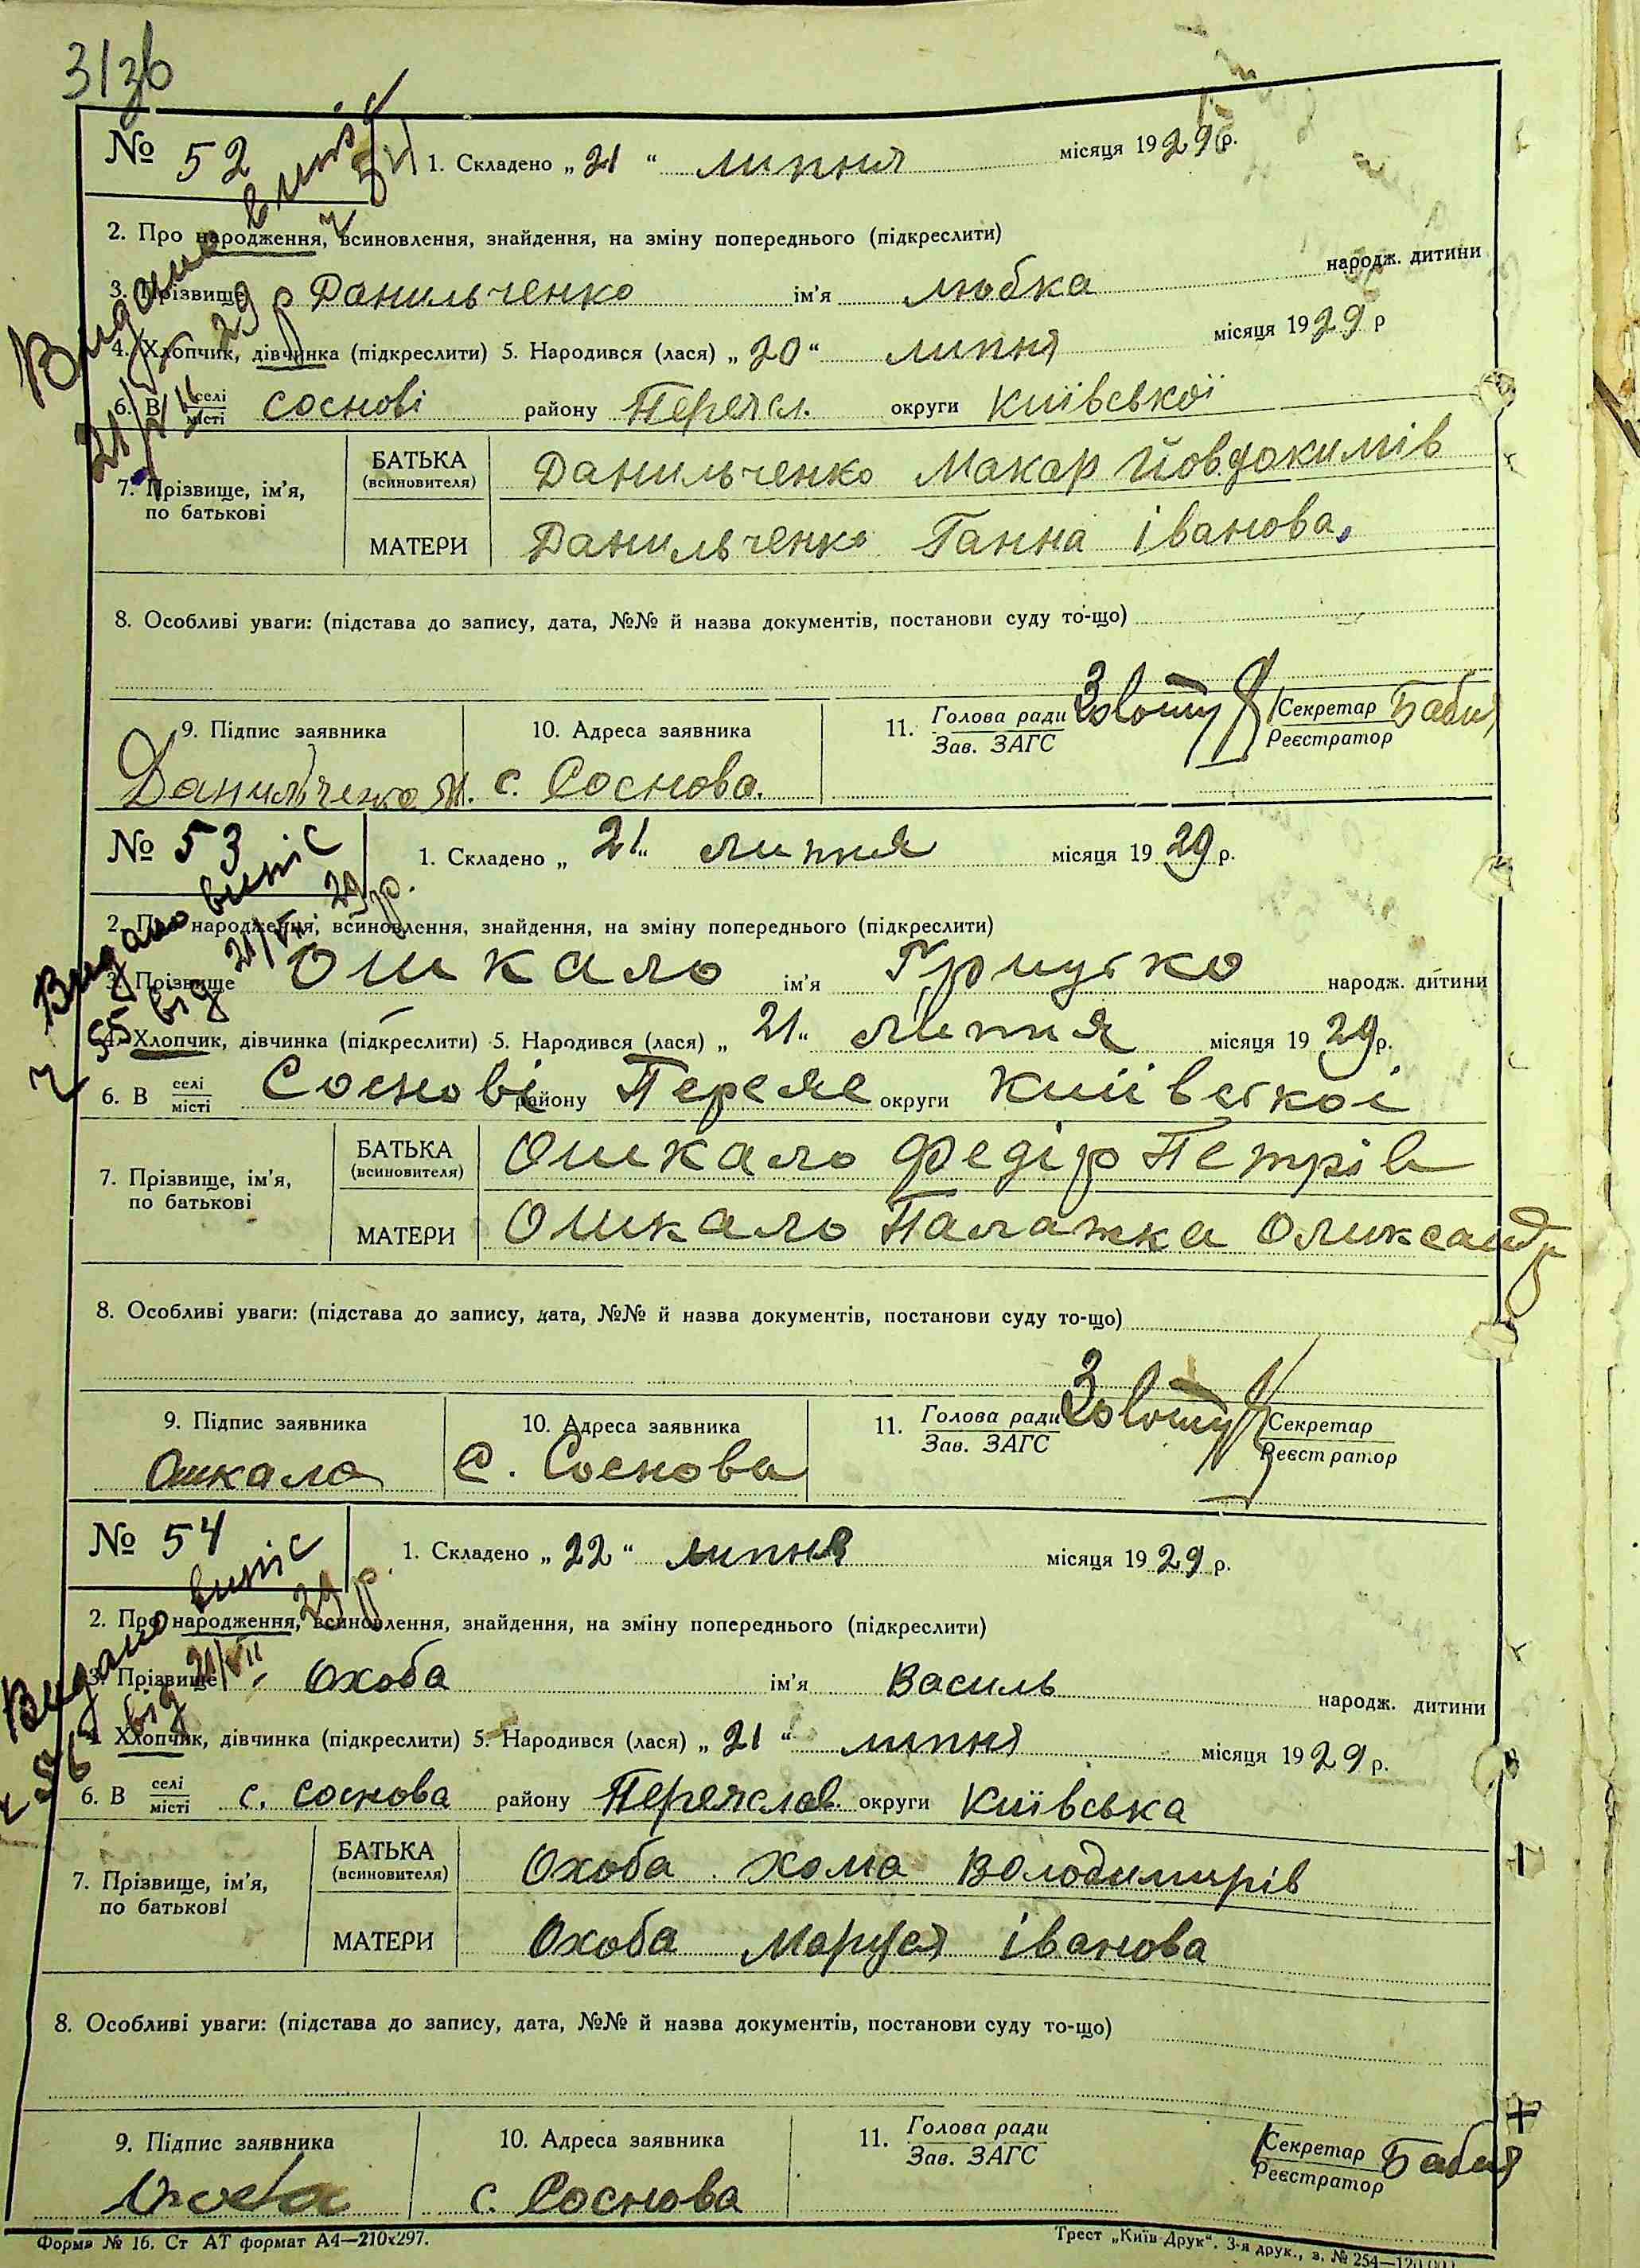 31зв
№ 52 1. Складено „21“ липня місяця 1929 р.
Видано випіс
ч 54
21/VII 29 р
2. Про народження, всиновлення, знайдення, на зміну попереднього (підкреслити)
3. Прізвище Данильченко ім'я любка народж. дитини
4. Хлопчик, дівчинка (підкреслити) 5. Народився (лася) „20“ липня місяця 1929 р
6. В селі місті соснові району Переясл. округи Київської
7. Прізвище, ім'я, по батькові
БАТЬКА (всиновителя) Данильченко Макар Йовдокимів
МАТЕРИ Данильченко Ганна іванова
8. Особливі уваги: (підстава до запису, дата, №№ й назва документів, постанови суду то-що)
9. Підпис заявника 10. Адреса заявника 11. Голова ради Зав. ЗАГС Секретар Реєстратор
Данильченко М. с. Соснова.
№ 53 1. Складено „21“ липня місяця 1929 р.
Видано випіс
ч 55 від 21/VII 29 р.
2. Про народження, всиновлення, знайдення, на зміну попереднього (підкреслити)
3. Прізвище Ошкало ім'я Грицько народж. дитини
4. Хлопчик, дівчинка (підкреслити) 5. Народився (лася) „21“ липня місяця 1929 р.
6. В селі місті Соснові району Переяс округи Київської
7. Прізвище, ім'я, по батькові
БАТЬКА (всиновителя) Ошкало Федір Петрів
МАТЕРИ Ошкало Палажка Олександр
8. Особливі уваги: (підстава до запису, дата, №№ й назва документів, постанови суду то-що)
9. Підпис заявника 10. Адреса заявника 11. Голова ради Зав. ЗАГС Секретар Реєстратор
Ошкало с. Соснова
№ 54 1. Складено „22“ липня місяця 1929 р.
Видано випіс
ч 56 від 21/VII 29 р.
2. Про народження, всиновлення, знайдення, на зміну попереднього (підкреслити)
3. Прізвище Охоба ім'я Василь народж. дитини
4. Хлопчик, дівчинка (підкреслити) 5. Народився (лася) „21“ липня місяця 1929 р.
6. В селі місті с. соснова району Переяслав. округи Київська
7. Прізвище, ім'я, по батькові
БАТЬКА (всиновителя) Охоба хома володимирів
МАТЕРИ Охоба Маруся іванова
8. Особливі уваги: (підстава до запису, дата, №№ й назва документів, постанови суду то-що)
9. Підпис заявника 10. Адреса заявника 11. Голова ради Зав. ЗАГС Секретар Реєстратор
Охоба с. Соснова
Форма № 16. Ст АТ формат А4—210х297. Трест „Київ-Друк“. 3-я друк., з. № 254—